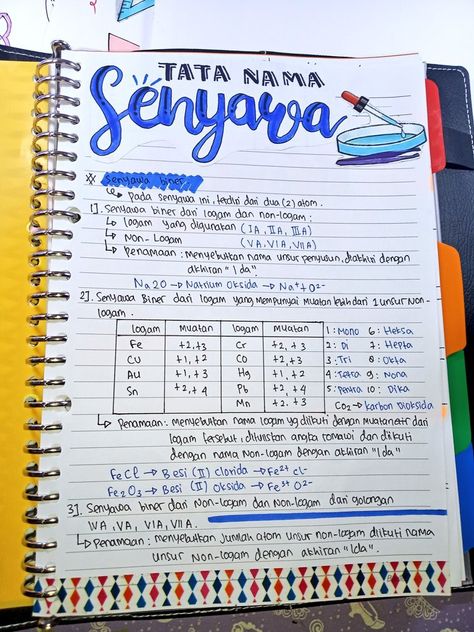 TATA NAMA
Senyawa
Senyawa biner
↳ pada senyawa ini, terdiri dari dua (2) atom.
1]. Senyawa biner dari logam dan non-logam :
↳ logam yang digunakan (IA, IIA, IIIA)
↳ Non-Logam (VA. VIA, VIIA)
↳ Penamaan : menyebutkan nama unsur penyusun, diakhiri dengan
akhiran "Ida".
Na2O → Natrium Oksida → Na⁺ + O²⁻
2]. Senyawa Biner dari logam yang mempunyai muatan lebih dari 1 unsur Non-
logam.
logam muatan logam muatan
Fe +2, +3 Cr +2, +3
Cu +1, +2 Co +2, +3
Au +1, +3 Hg +1, +2
Sn +2, +4 Pb +2, +4
Mn +2, +3
1 : Mono 6 : Heksa
2 : Di 7 : Hepta
3 : Tri 8 : Okta
4 : Tetra 9 : Nona
5 : penta 10 : Dika
CO₂ → karbon Dioksida
↳ Penamaan : menyebutkan nama logam yg diikuti dengan muatan dari
logam tersebut, dituliskan angka romawi dan diikuti
dengan nama Non-logam dengan akhiran "Ida"
FeCl → Besi (II) clorida → Fe²⁺ Cl⁻
Fe₂O₃ → Besi (II) Oksida → Fe³⁺ O²⁻
3]. Senyawa biner dari Non-logam dan Non-logam dari golongan
IVA, VA, VIA, VIIA.
↳ Penamaan : menyebutkan jumlah atom unsur non-logam diikuti nama
unsur Non-logam dengan akhiran "Ida".